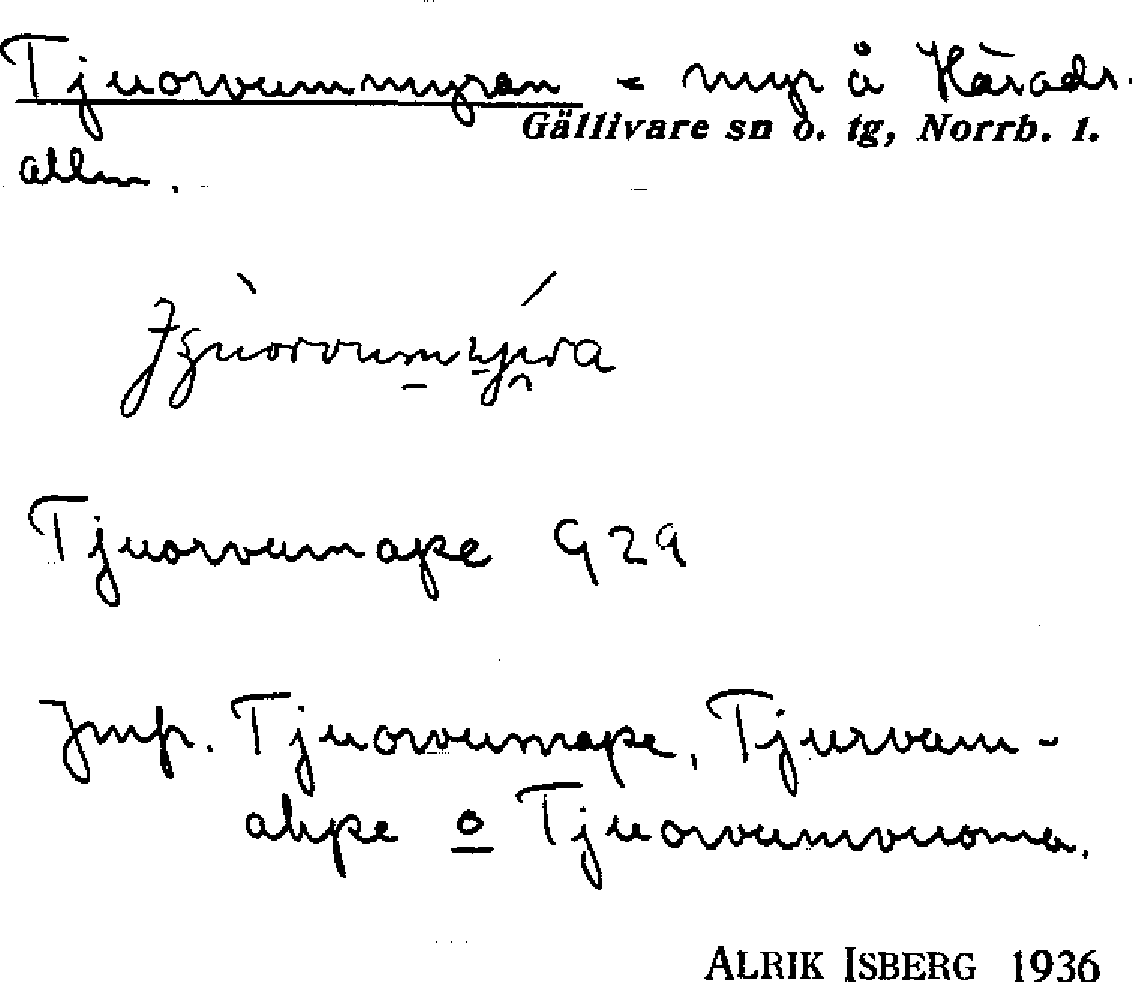 Tjuorvummyran - myr å Härads.
Gällivare sn o. tg, Norrb. l.
allm.
Tjuorvumape G29
Jmfr. Tjuorvumape, Tjurvam-
ahpe o Tjuorvumvuoma.
ALRIK ISBERG 1936